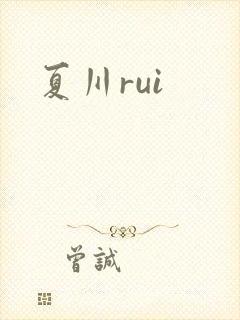 夏川rui
曾誠